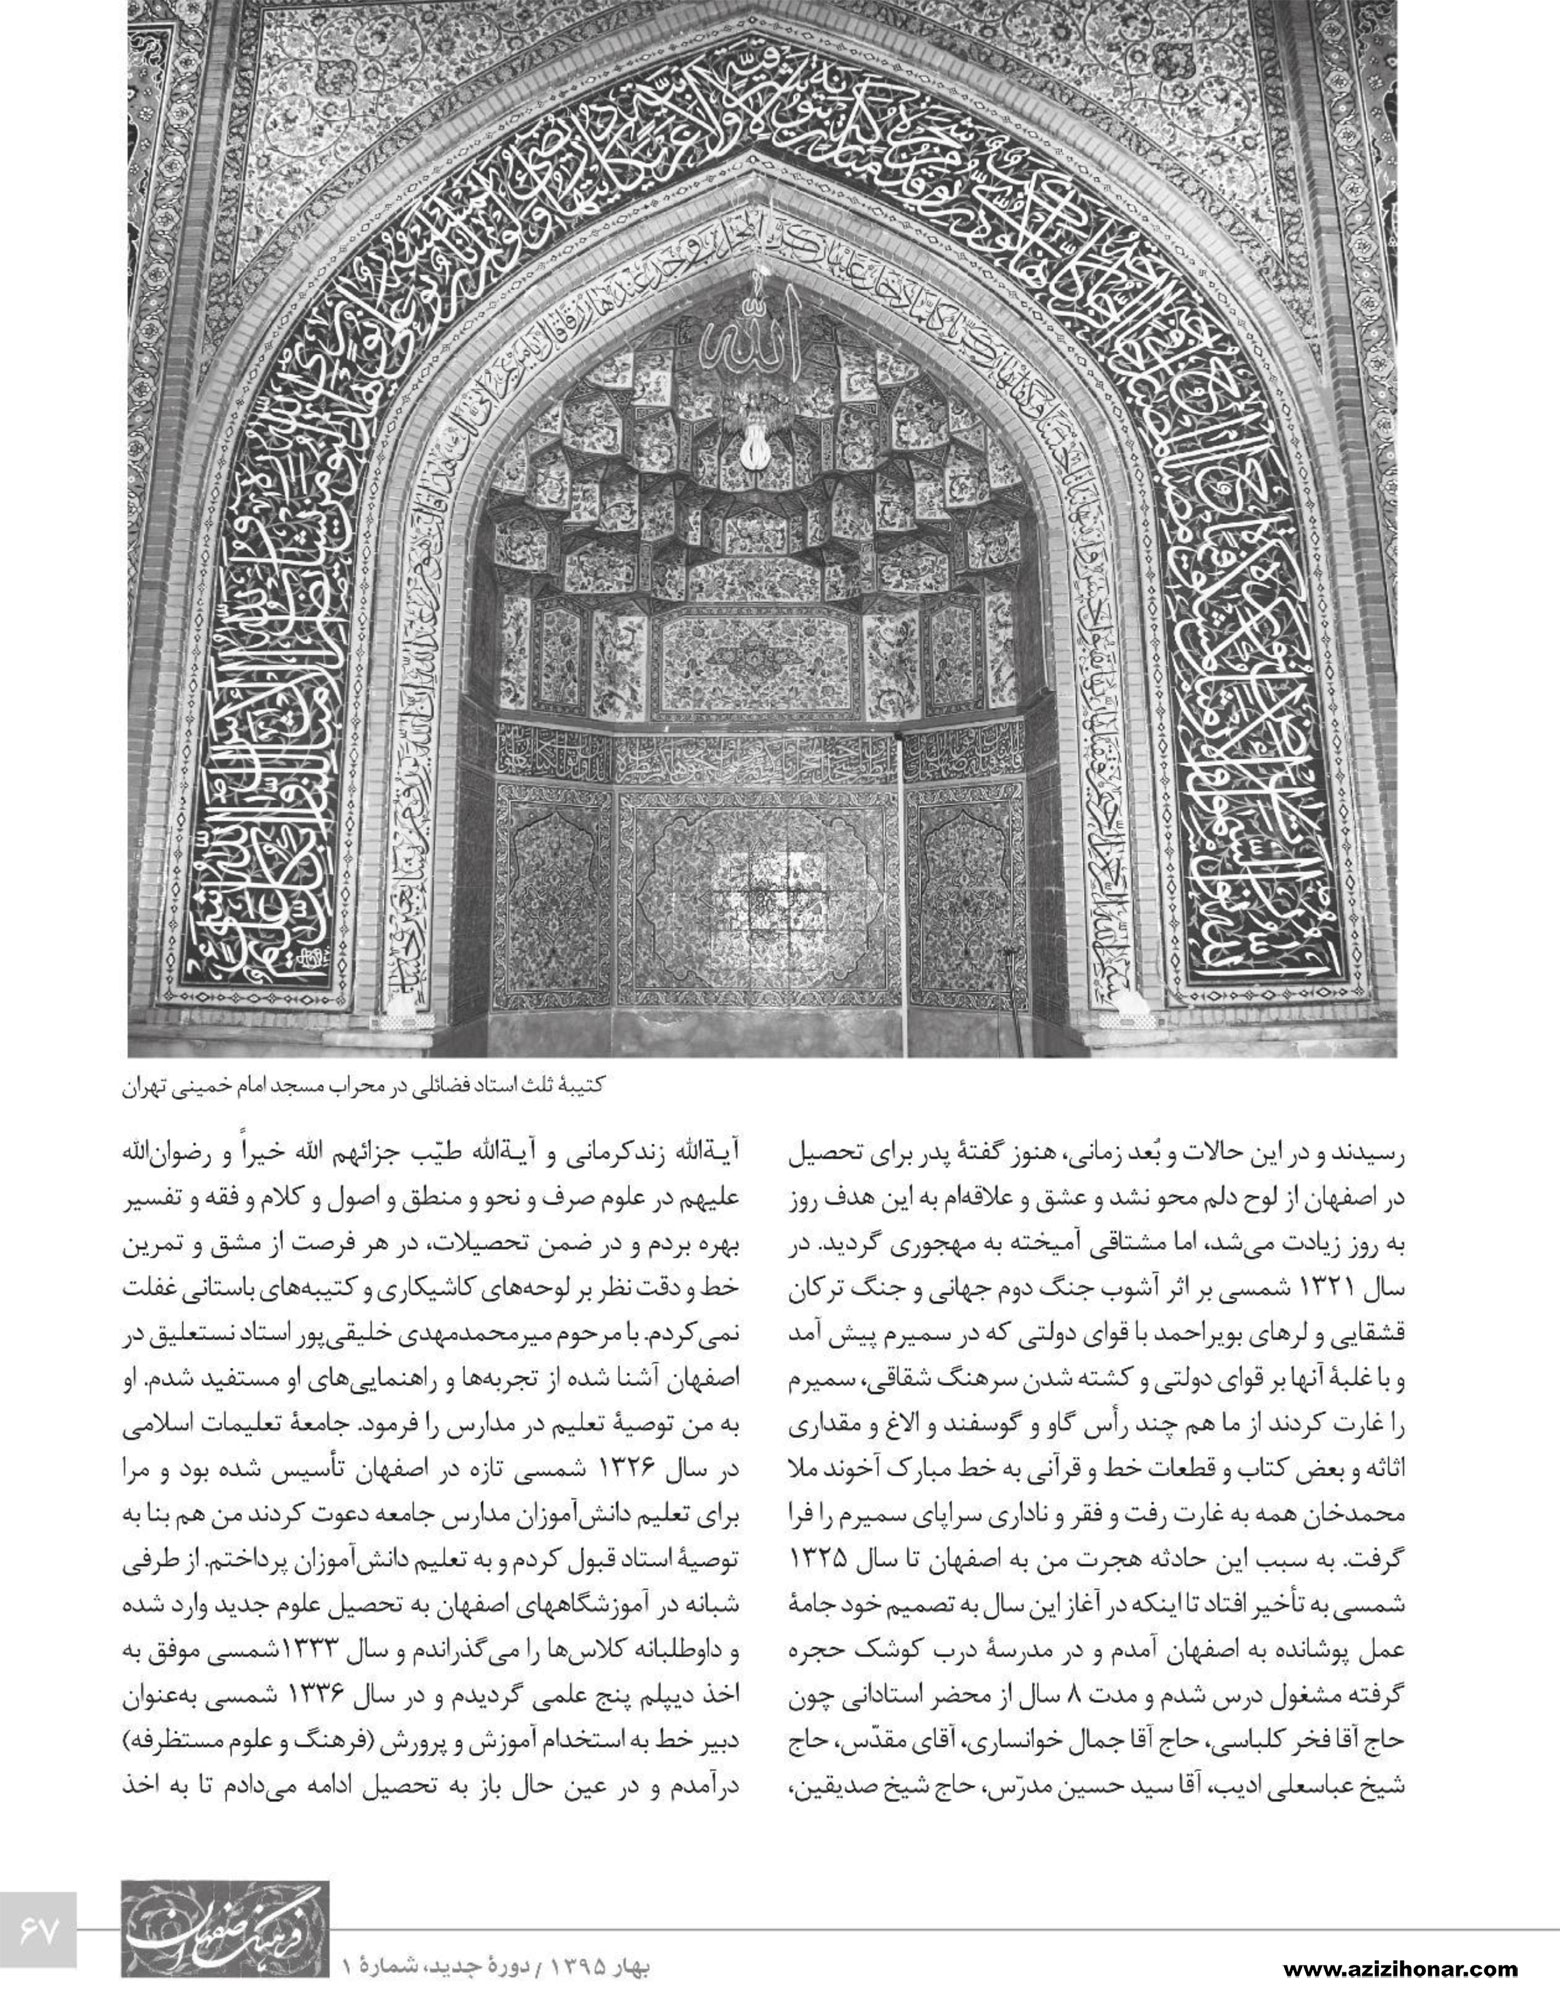 الله
کتیبهٔ ثلث استاد فضائلی در محراب مسجد امام خمینی تهران
رسیدند و در این حالات و بُعد زمانی، هنوز گفتهٔ پدر برای تحصیل
در اصفهان از لوح دلم محو نشد و عشق و علاقه‌ام به این هدف روز
به روز زیادت می‌شد، اما مشتاقی آمیخته به مهجوری گردید. در
سال ۱۳۲۱ شمسی بر اثر آشوب جنگ دوم جهانی و جنگ ترکان
قشقایی و لرهای بویراحمد با قوای دولتی که در سمیرم پیش آمد
و با غلبهٔ آنها بر قوای دولتی و کشته شدن سرهنگ شقاقی، سمیرم
را غارت کردند از ما هم چند رأس گاو و گوسفند و الاغ و مقداری
اثاثه و بعض کتاب و قطعات خط و قرآنی به خط مبارک آخوند ملا
محمدخان همه به غارت رفت و فقر و ناداری سراپای سمیرم را فرا
گرفت. به سبب این حادثه هجرت من به اصفهان تا سال ۱۳۲۵
شمسی به تأخیر افتاد تا اینکه در آغاز این سال به تصمیم خود جامهٔ
عمل پوشانده به اصفهان آمدم و در مدرسهٔ درب کوشک حجره
گرفته مشغول درس شدم و مدت ۸ سال از محضر استادانی چون
حاج آقا فخر کلباسی، حاج آقا جمال خوانساری، آقای مقدّس، حاج
شیخ عباسعلی ادیب، آقا سید حسین مدرّس، حاج شیخ صدیقین،
آیةالله زندکرمانی و آیةالله طیّب جزائهم الله خیراً و رضوان‌الله
علیهم در علوم صرف و نحو و منطق و اصول و کلام و فقه و تفسیر
بهره بردم و در ضمن تحصیلات، در هر فرصت از مشق و تمرین
خط و دقت نظر بر لوحه‌های کاشیکاری و کتیبه‌های باستانی غفلت
نمی‌کردم. با مرحوم میرمحمدمهدی خلیقی‌پور استاد نستعلیق در
اصفهان آشنا شده از تجربه‌ها و راهنمایی‌های او مستفید شدم. او
به من توصیهٔ تعلیم در مدارس را فرمود. جامعهٔ تعلیمات اسلامی
در سال ۱۳۲۶ شمسی تازه در اصفهان تأسیس شده بود و مرا
برای تعلیم دانش‌آموزان مدارس جامعه دعوت کردند من هم بنا به
توصیهٔ استاد قبول کردم و به تعلیم دانش‌آموزان پرداختم. از طرفی
شبانه در آموزشگاههای اصفهان به تحصیل علوم جدید وارد شده
و داوطلبانه کلاس‌ها را می‌گذراندم و سال ۱۳۳۳شمسی موفق به
اخذ دیپلم پنج علمی گردیدم و در سال ۱۳۳۶ شمسی به‌عنوان
دبیر خط به استخدام آموزش و پرورش (فرهنگ و علوم مستظرفه)
درآمدم و در عین حال باز به تحصیل ادامه می‌دادم تا به اخذ
۶۷
فرهنگ اصفهان
بهار ۱۳۹۵ / دورهٔ جدید، شمارهٔ ۱
www.azizihonar.com